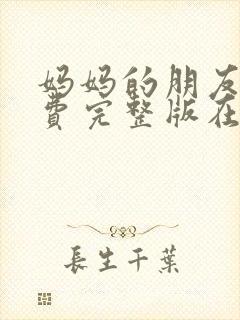 妈妈的朋友
费完整版在
長生千葉